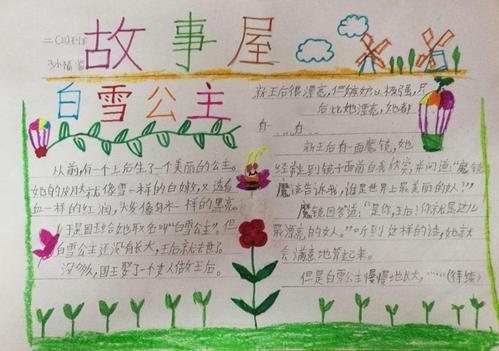 故事屋
白雪公主
从前,有一个王后生了一个美丽的公主。
她的皮肤就像雪一样的白嫩,又透着
血一样的红润,头发像乌木一样的黑亮。
于是国王给她取名叫“白雪公主”,但
白雪公主还没有长大,王后就去世了。
没多久,国王娶了一个女人做王后。
新王后很漂亮,但
比她漂亮,她都
新王后有一面魔镜,她
经常走到镜子面前自我欣赏,并问道:“魔镜
魔镜告诉我,谁是世界上最美丽的女人?”
魔镜回答道:“是你,王后!你就是这儿
最漂亮的女人。”听到这样的话,她就
会满意地笑起来。
但是白雪公主慢慢地长大,……(待续)